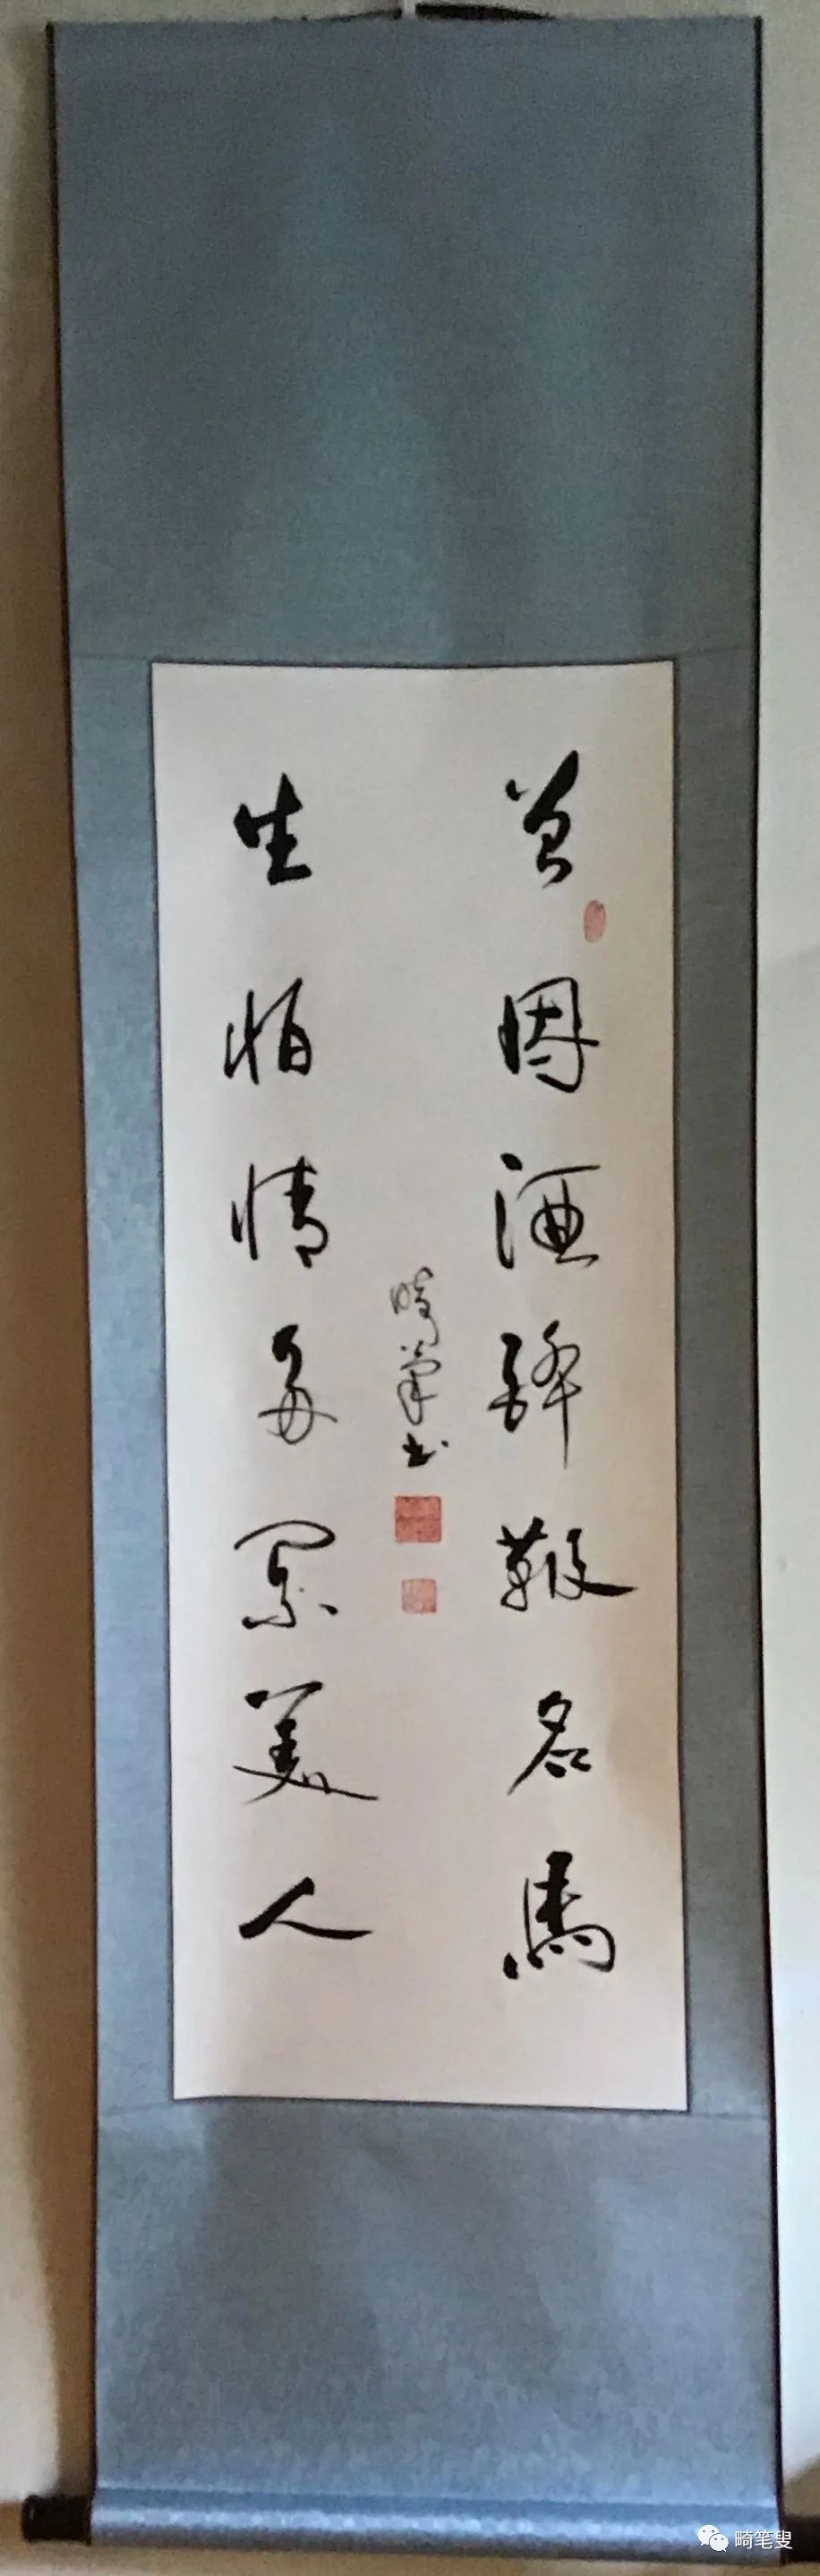 曾因酒醉鞭名馬
生怕情多累美人
畸筆書
畸笔叟